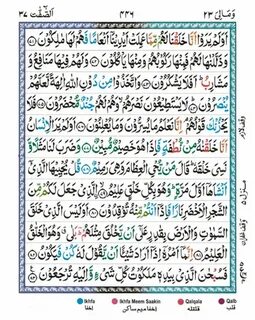 وَمَالِیَ ٢٣ ٤٤٦ اَلصّٰٓفّٰت ٣٧
اَوَلَمْ يَرَوْا اَنَّا خَلَقْنَا لَهُمْ مِّمَّا عَمِلَتْ اَيْدِيْنَاۤ اَنْعَامًا فَهُمْ لَهَا مٰلِكُوْنَ ۝٧١
وَذَلَّلْنٰهَا لَهُمْ فَمِنْهَا رَكُوْبُهُمْ وَمِنْهَا يَاْكُلُوْنَ ۝٧٢ وَلَهُمْ فِيْهَا مَنَافِعُ وَ
مَشَارِبُ ؕ اَفَلَا يَشْكُرُوْنَ ۝٧٣ وَاتَّخَذُوْا مِنْ دُوْنِ اللّٰهِ اٰلِهَةً لَّعَلَّهُمْ
يُنْصَرُوْنَ ۝٧٤ لَا يَسْتَطِيْعُوْنَ نَصْرَهُمْ ۙ وَهُمْ لَهُمْ جُنْدٌ مُّحْضَرُوْنَ ۝٧٥ فَلَا
يَحْزُنْكَ قَوْلُهُمْ ۘ اِنَّا نَعْلَمُ مَا يُسِرُّوْنَ وَمَا يُعْلِنُوْنَ ۝٧٦ اَوَلَمْ يَرَ الْاِنْسَانُ
اَنَّا خَلَقْنٰهُ مِنْ نُّطْفَةٍ فَاِذَا هُوَ خَصِيْمٌ مُّبِيْنٌ ۝٧٧ وَضَرَبَ لَنَا مَثَلًا وَّ
نَسِيَ خَلْقَهٗ ؕ قَالَ مَنْ يُّحْيِ الْعِظَامَ وَهِيَ رَمِيْمٌ ۝٧٨ قُلْ يُحْيِيْهَا الَّذِيْۤ
اَنْشَاَهَاۤ اَوَّلَ مَرَّةٍ ؕ وَهُوَ بِكُلِّ خَلْقٍ عَلِيْمٌ ۝٧٩ الَّذِيْ جَعَلَ لَكُمْ مِّنَ
الشَّجَرِ الْاَخْضَرِ نَارًا فَاِذَاۤ اَنْتُمْ مِّنْهُ تُوْقِدُوْنَ ۝٨٠ اَوَلَيْسَ الَّذِيْ خَلَقَ
السَّمٰوٰتِ وَالْاَرْضَ بِقٰدِرٍ عَلٰۤى اَنْ يَّخْلُقَ مِثْلَهُمْ ؕ بَلٰى وَهُوَ الْخَلّٰقُ
الْعَلِيْمُ ۝٨١ اِنَّمَاۤ اَمْرُهٗۤ اِذَاۤ اَرَادَ شَيْـًٔا اَنْ يَّقُوْلَ لَهٗ كُنْ فَيَكُوْنُ ۝٨٢
فَسُبْحٰنَ الَّذِيْ بِيَدِهٖ مَلَكُوْتُ كُلِّ شَيْءٍ وَّاِلَيْهِ تُرْجَعُوْنَ ۝٨٣
وقف لازم
منزل ٥
وقف غفران
Ikhfa Ikhfa Meem Saakin Qalqala Qalb
اخفا اخفا میم ساکن قلقله قلب